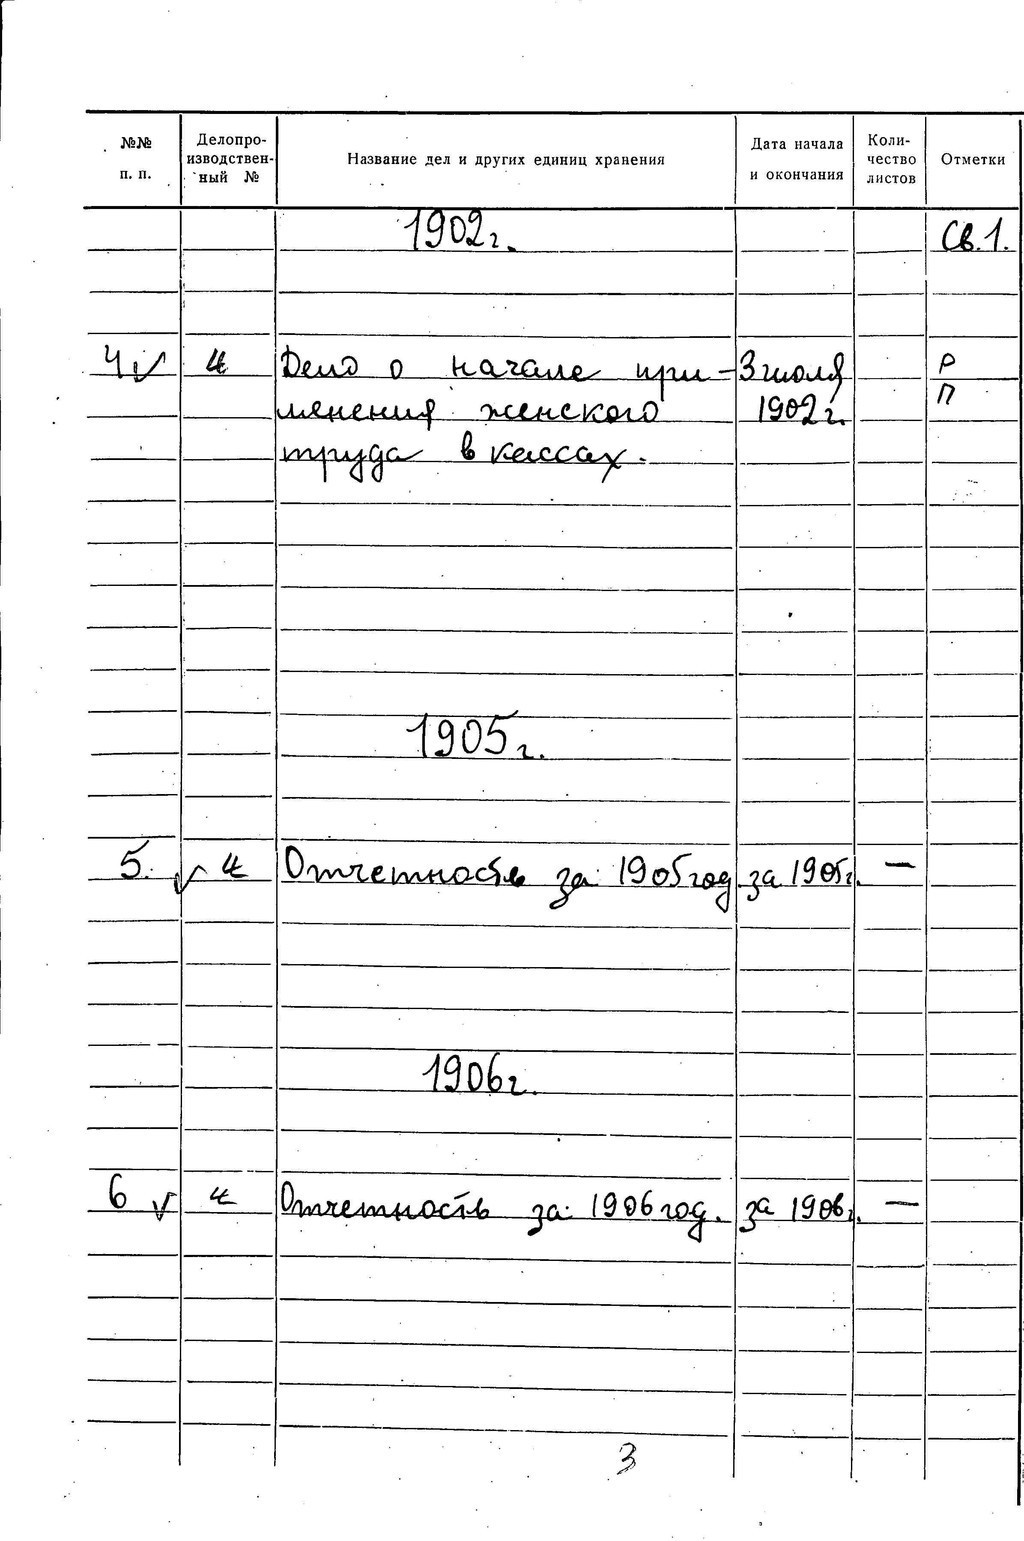 №№ п. п. Делопро-изводствен-ный № Название дел и других единиц хранения Дата начала и окончания Коли-чество листов Отметки
1902 г. Св. 1.
4 Дело о начале при- 3 июля Р
менения женского 1902 г. П
труда в кассах.
1905 г.
5. Отчетность за 1905 год за 1905 г. —
1906 г.
6 Отчетность за 1906 год. за 1906 г. —
3